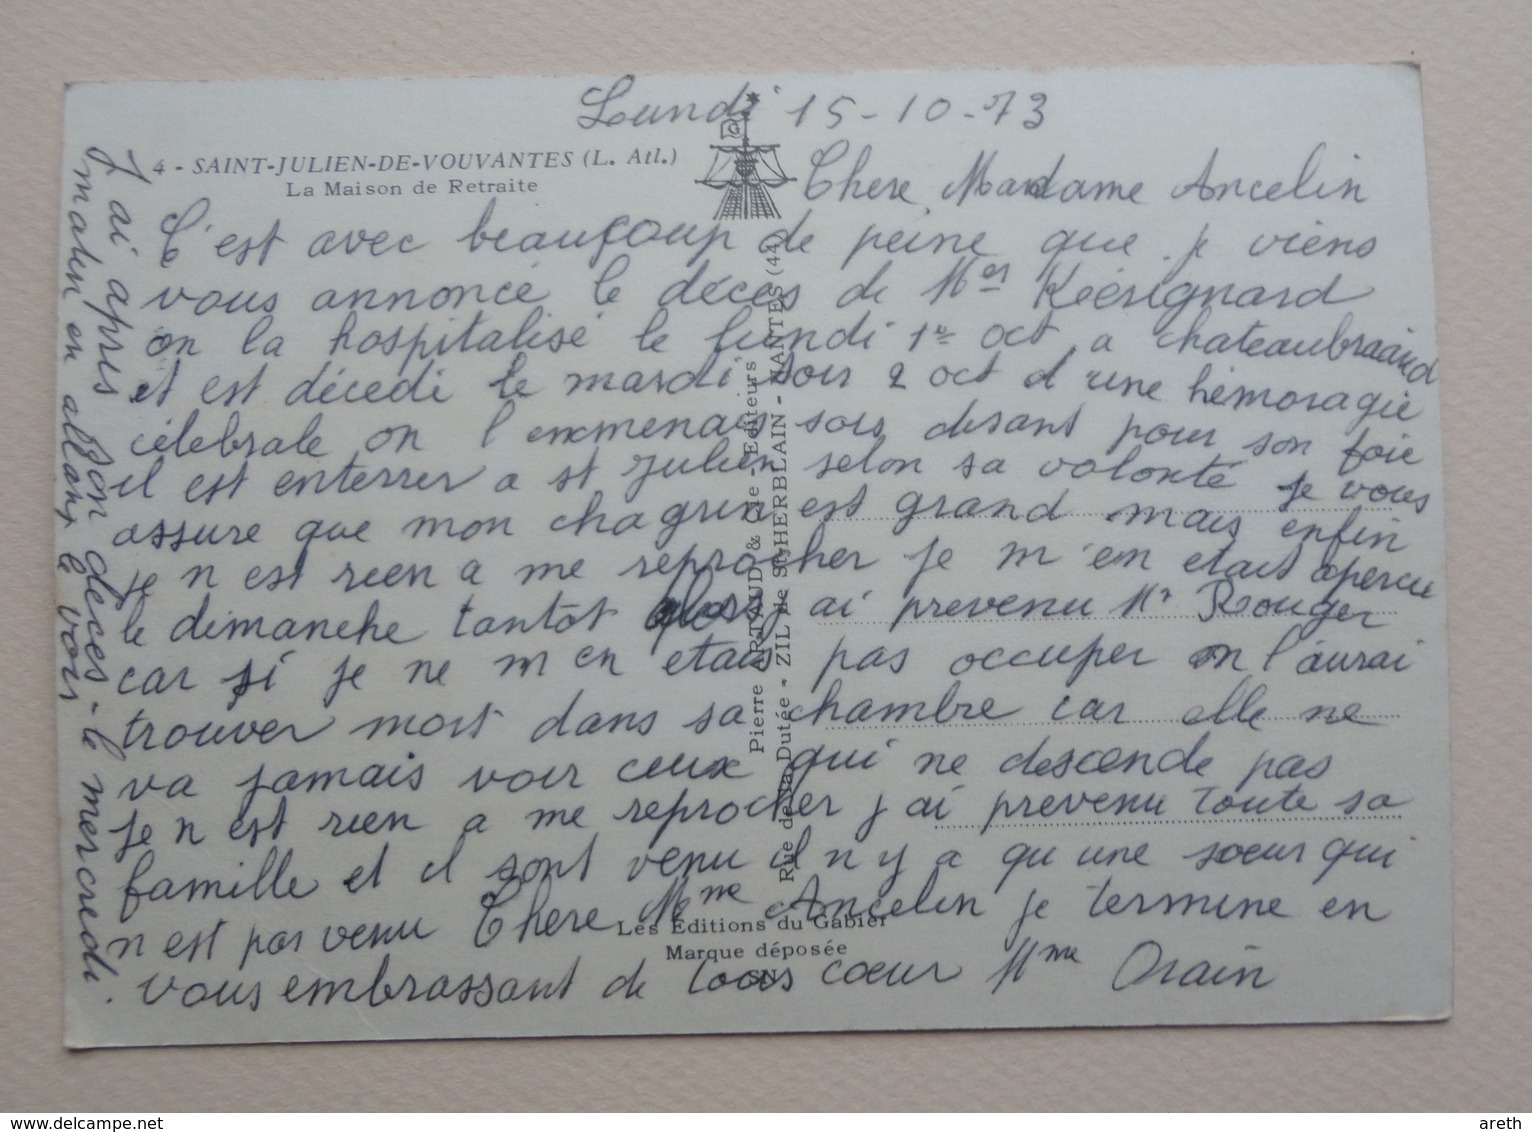 Lundi 15-10-73
4 - SAINT-JULIEN-DE-VOUVANTES (L. Atl.)
La Maison de Retraite
Chere Madame Ancelin
C'est avec beaucoup de peine que je viens
vous annoncé le décès de Mer
on la hospitalisé le lundi 1er oct a chateaubraiand
et est décedé le mardi soir 2 oct d'une hémoragie
célebrale on l'enmenais sois disant pour son foie
il est enterrer a st Julien selon sa volonté je vous
assure que mon chagrin est grand mais enfin
je n est rien a me reprocher je m'en etait apercu
le dimanche tantôt j ai prevenu Mr Rouger
car si je ne m en etais pas occuper on l'aurai
trouver mort dans sa chambre car elle ne
va jamais voir ceux qui ne descende pas
je n est rien a me reprocher j ai prevenu toute sa
famille et il sont venu il n y a qu une soeur qui
n est pas venu Chere Mme Ancelin je termine en
vous embrassant de tous coeur Mme Orain
J ai apres son deces - le mercredi
matin en allant le voir.
Pierre ARTAUD & Cie - Editeurs
Rue de la Dutée - ZIL de St-HERBLAIN - NANTES (44)
Les Editions du Gabier
Marque déposée
GN
www.delcampe.net
areth